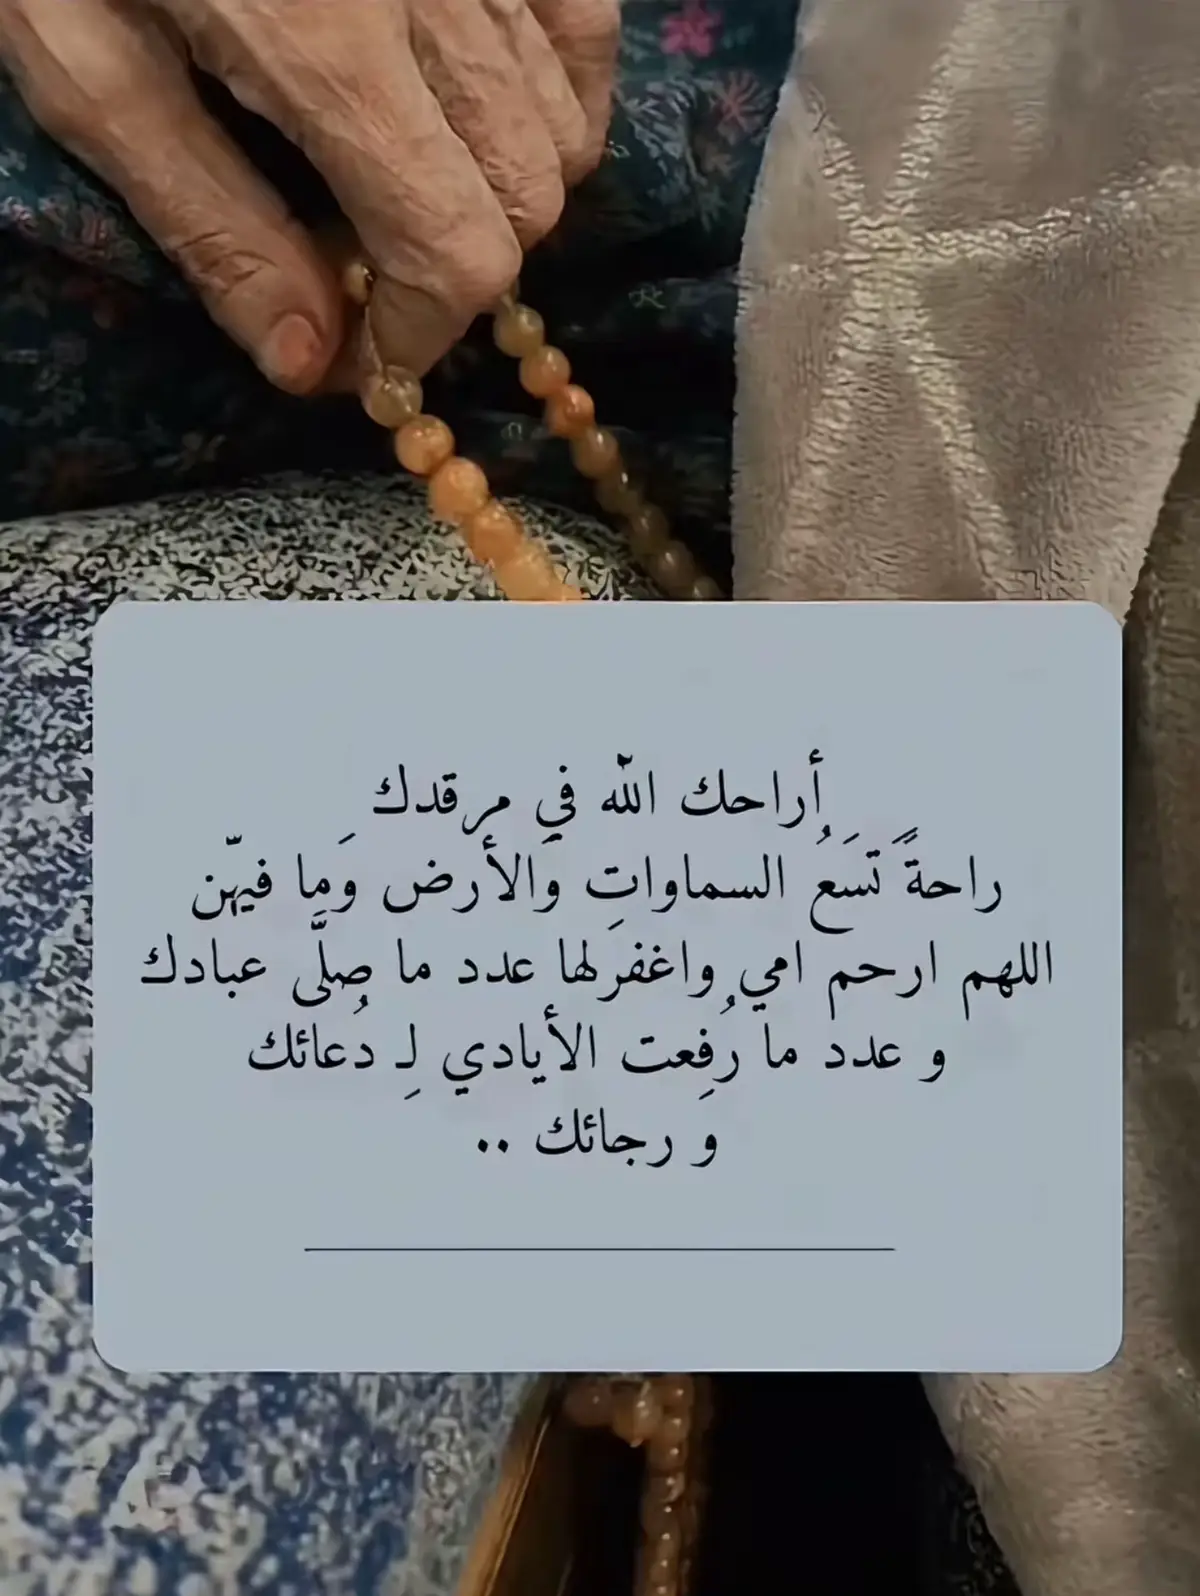 أراحك الله في مرقدك
راحةً تَسَعُ السماواتِ وَالأرض وَما فيهّن
اللهم ارحم امي واغفرلها عدد ما صلَّى عبادك
و عدد ما رُفِعت الأيادي لِـ دُعائك
وَ رجائك ..